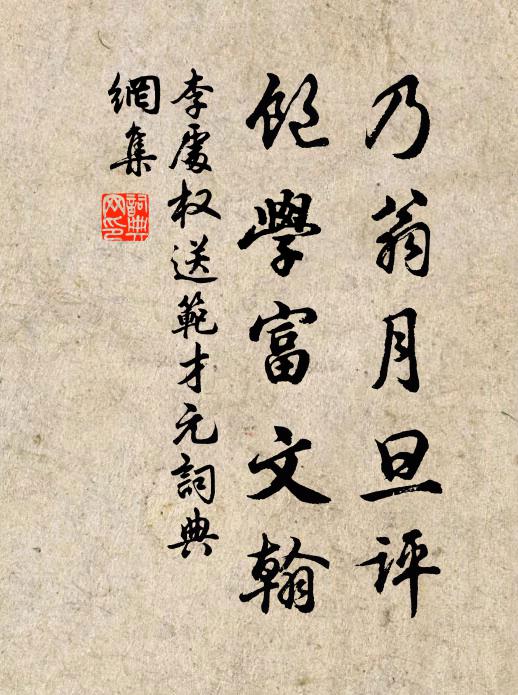 乃翁月旦评
饱学富文翰
李處权送範才元詞典
網集
詞典
网印